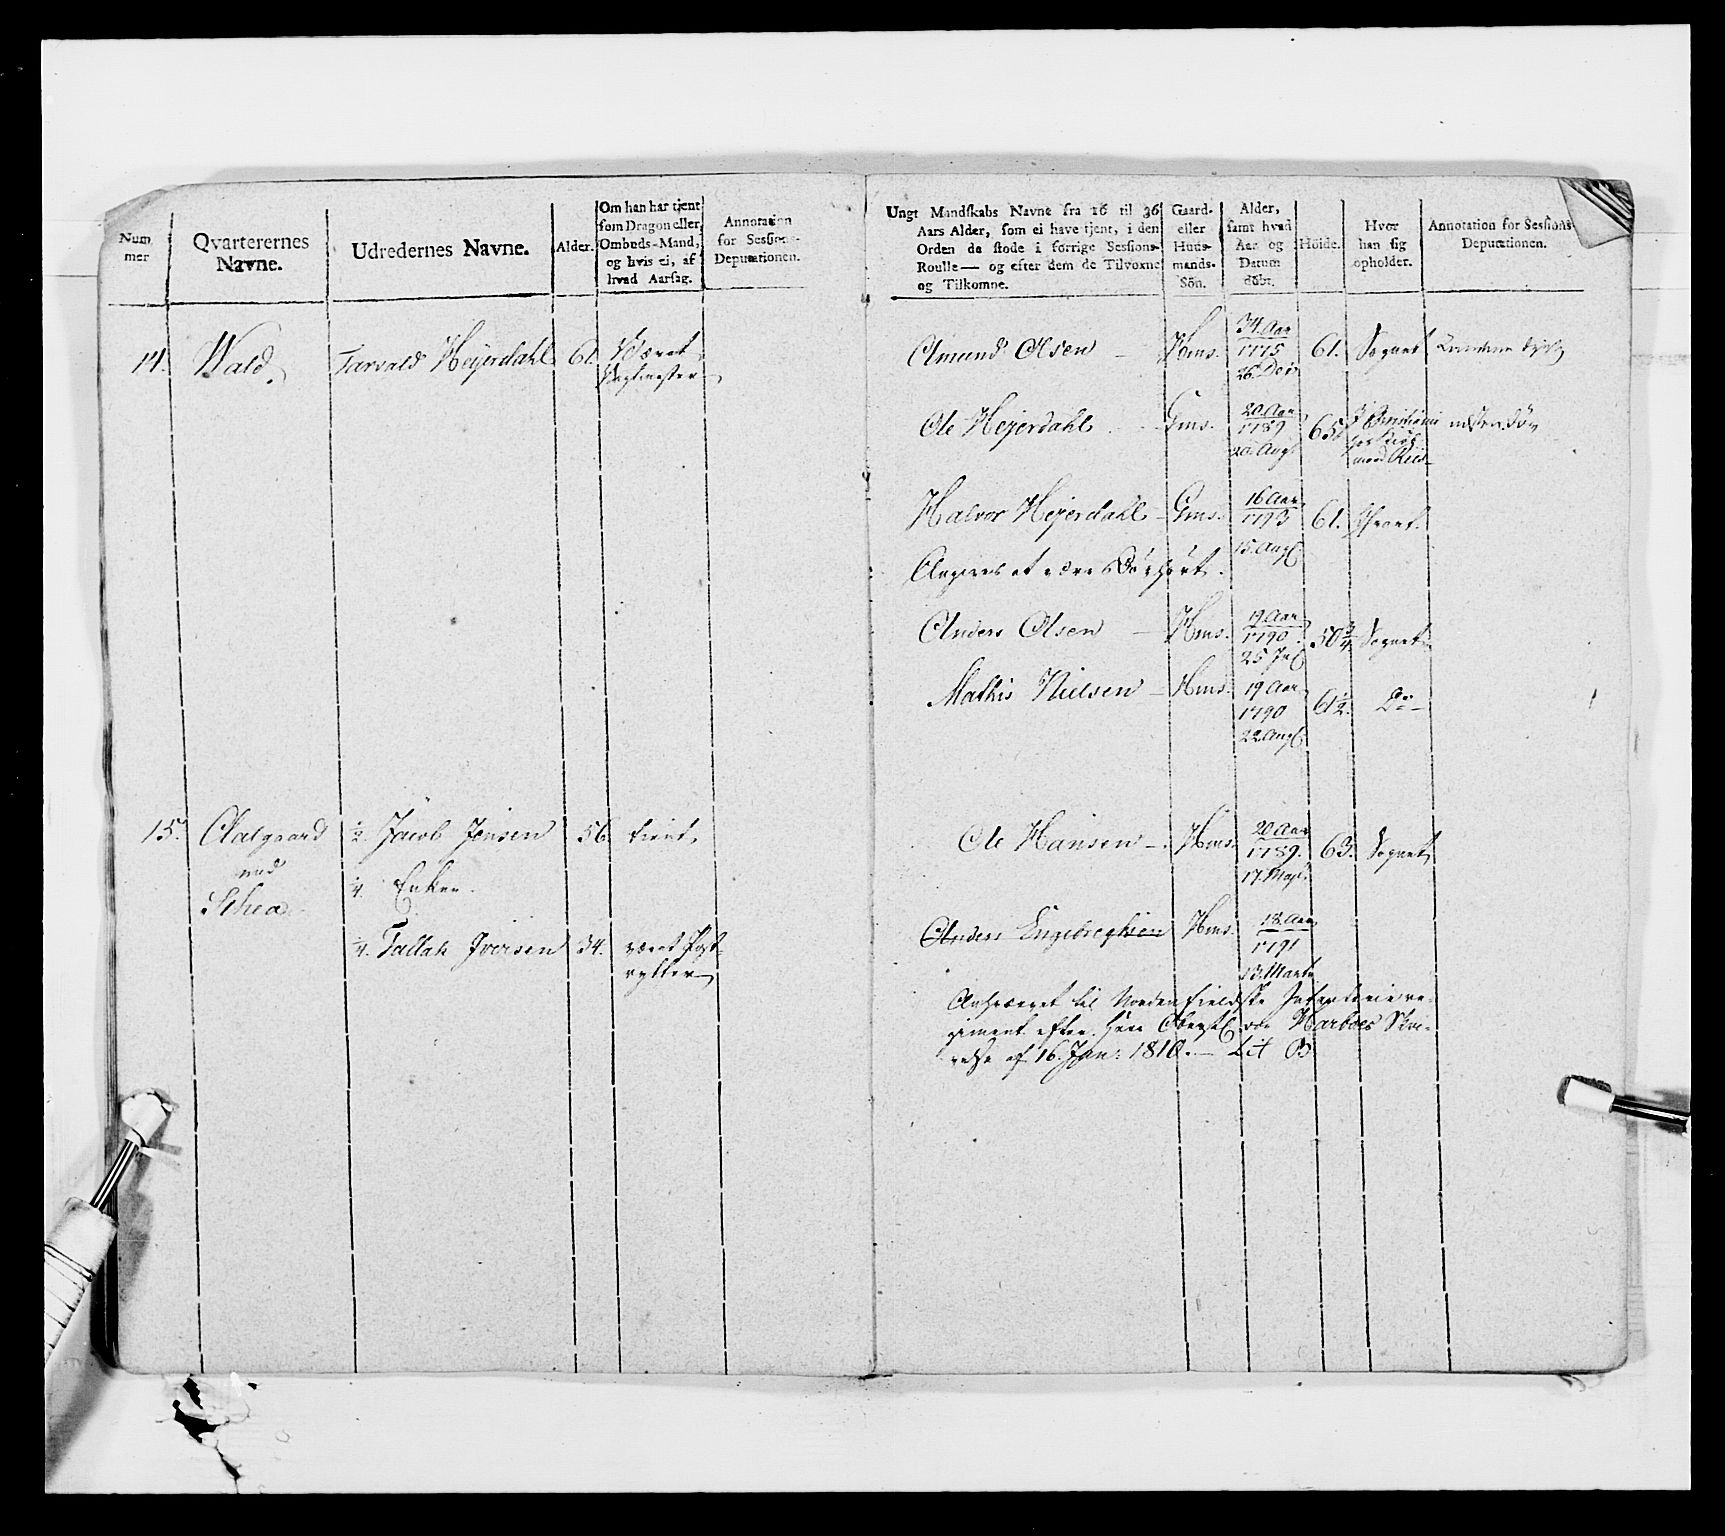 Num
mer
Qvarterernes
Navne.
Udredernes Navne.
Alder.
Om han har tjent
som Dragon eller
Ombuds-Mand,
og hvis ei, af
hvad Aarsag.
Annotation
for Sessions-
Deputationen.
14. Wald. Tarvald Heyerdahl 61. Været
Vagtmester
15. Aalgaard ½. Jacob Jensen 56. tient
med
Schea
¼. Enken.
¼. Tallak Iversen 34. været Post-
rytter
Ungt Mandskabs Navne fra 16 til 36
Aars Alder, som ei have tjent, i den
Orden de stode i forrige Sessions-
Roulle — og efter dem de Tilvoxne
og Tilkomne.
Gaard-
eller
Huus-
mands-
Sön.
Alder,
samt hvad
Aar og
Datum
döbt.
Höide.
Hvor
han sig
opholder.
Annotation for Sessions-
Deputationen.
Amund Olsen — Hms. 34. Aar 1775 26. Dec 61. Sognet
Ole Heyerdahl Gms. 20 Aar 1789 20. Aug. 65.
Halvor Heyerdahl — Gms. 16 Aar 1793 15. Aug. 61.
Angives at være
Anders Olsen — Hms. 19 Aar 1790 25 50¾ Sognet
Mathis Nielsen — Hms. 19 Aar 1790 22 Aug. 61½. Do —
Ole Hansen — Hms. 20 Aar 1789. 17. Maji. 63. Sognet
Anders Engebregtsen Hms. 18 Aar 1791 13. Marts
til Nordenfieldske Infanterie re-
giment efter Herr Harboes Skri-
velse af 16. Jan: 1810. — Lit B